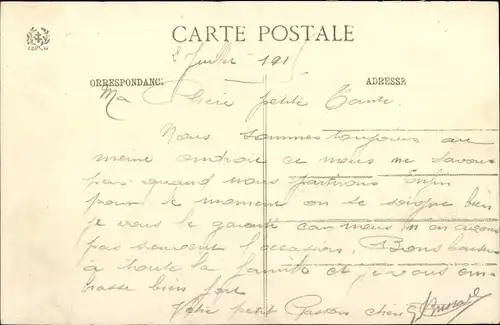 CARTE POSTALE
8 Juillet 191
CORRESPONDANCE
ADRESSE
Ma Chère petite Tante.
Nous sommes toujours au
meme endroit ce nous ne savons
pas quand nous partirons Enfin
pour le moment on se soigne bien
je vous le garanti car nous n en avons
pas souvent l'occasion. Bons baisers
à toute la famille et je vous em
brasse bien fort
Votre petit Gaston chéri